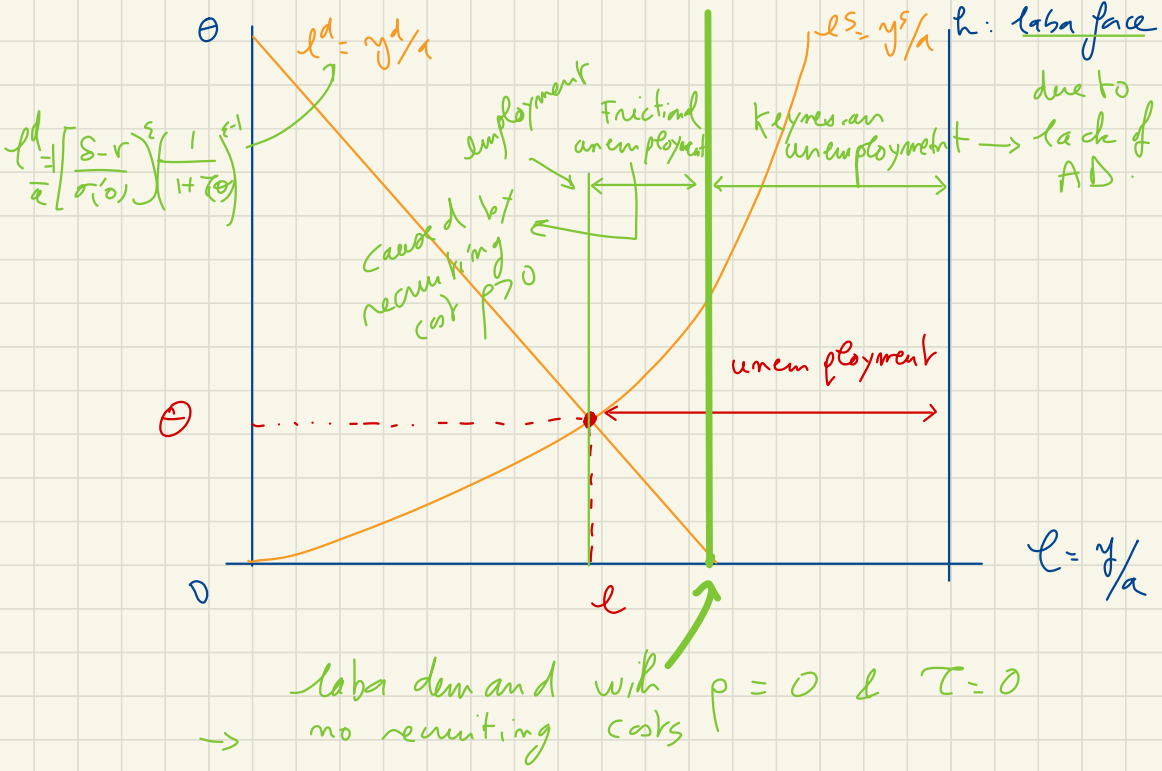 θ
l^d = y^d/a
l^s = y^s/a
h: labor force
due to
lack of
AD.
employment
Frictional
unemployment
Keynesian
unemployment →
l^d = 1/a [ (δ-r)/σ'(0) ]^ε (1/(1+τ(θ)))^{ε-1}
caused by
recruiting
cost ρ>0
unemployment
θ
0
l
l = y/a
labor demand with ρ = 0 & τ = 0
→ no recruiting costs